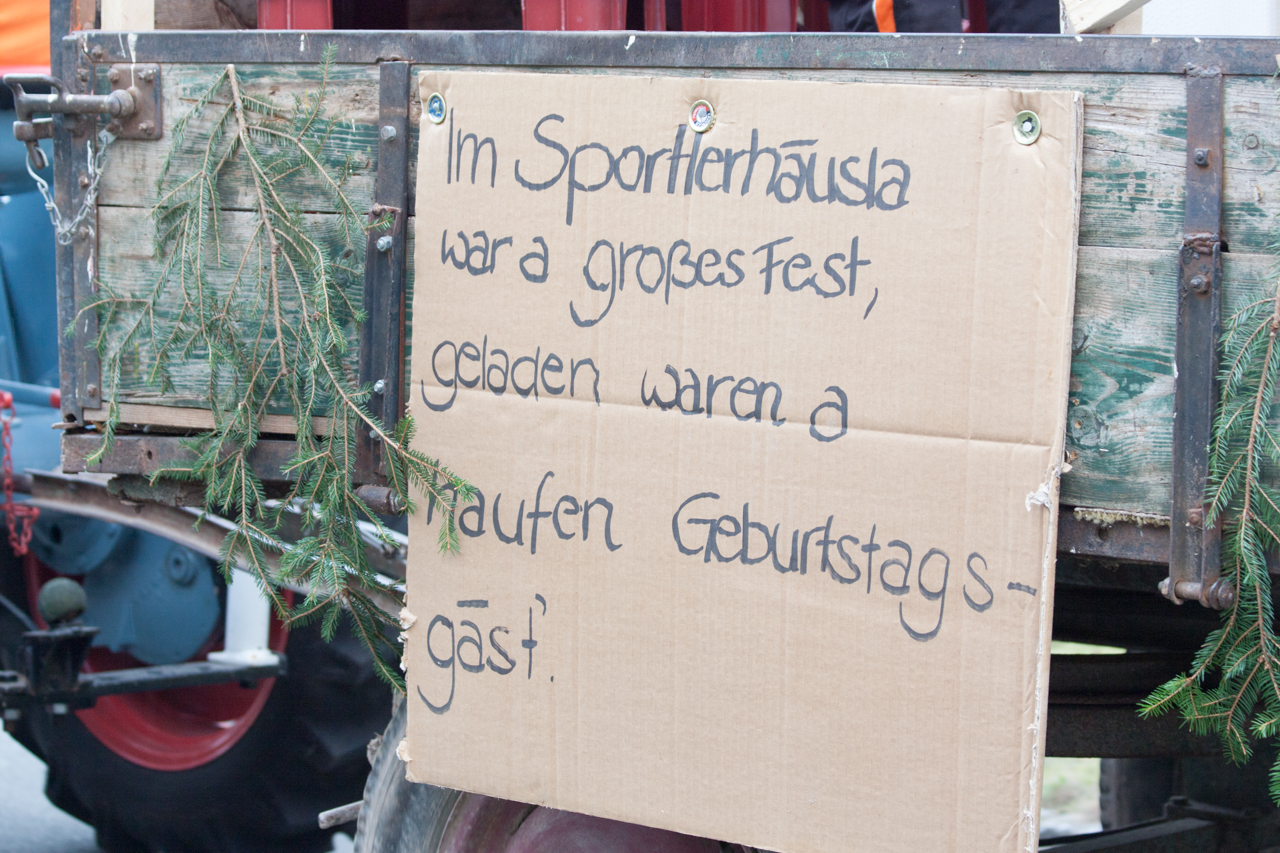 Im Sportlerhäusla
war a großes Fest,
geladen waren a
haufen Geburtstags-
gäst'.